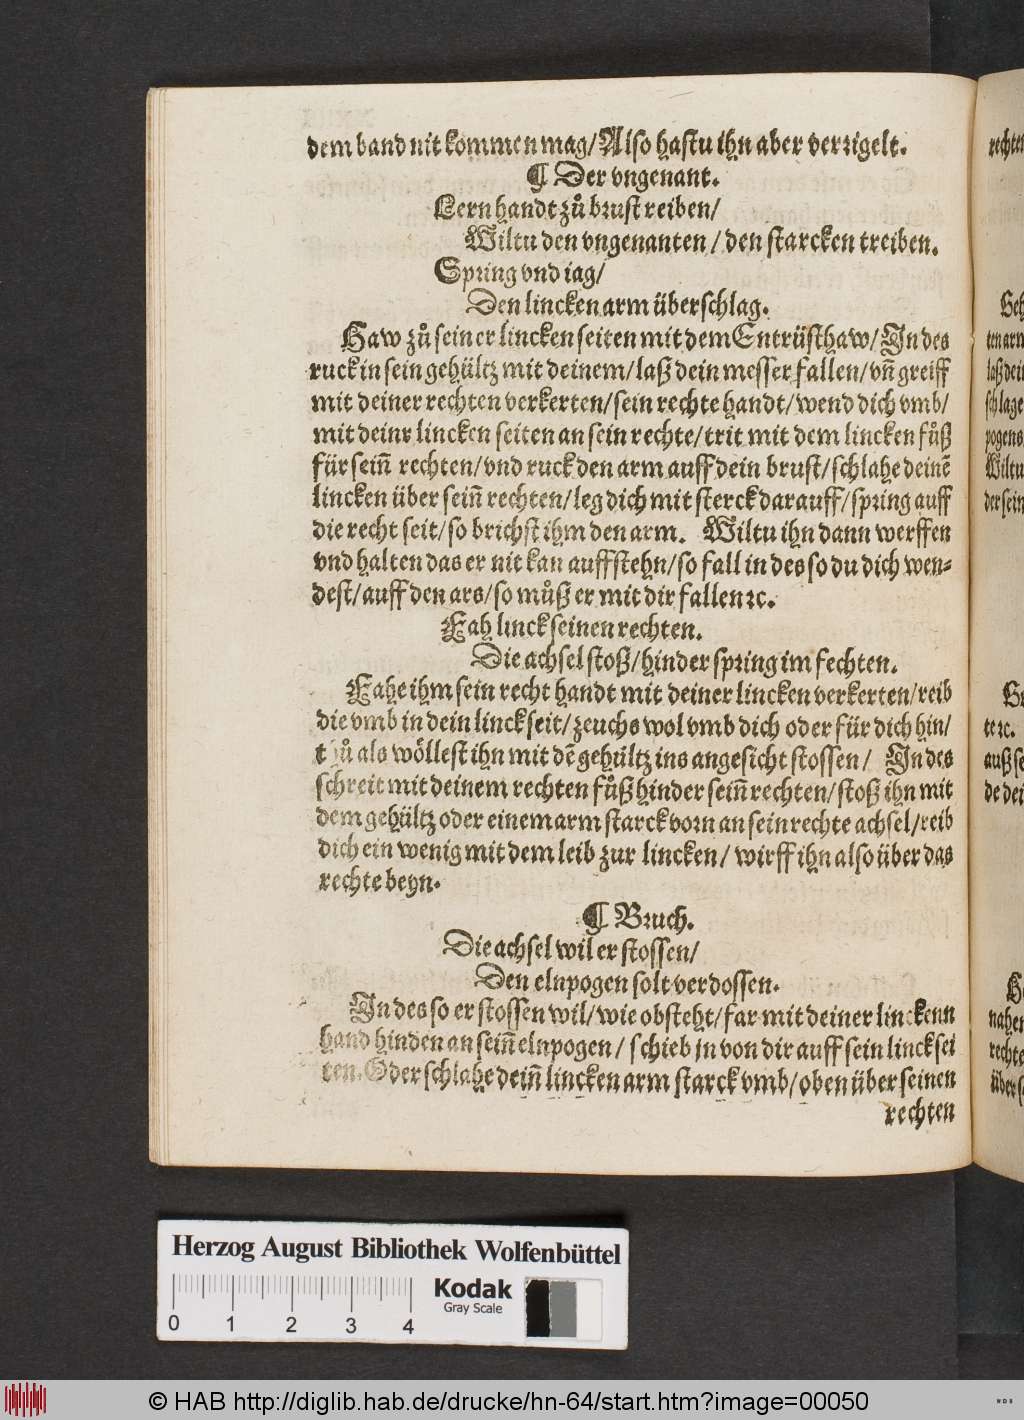 dem band nit kommen mag/Also hastu ihn aber verzigelt.
¶ Der vngenant.
Lern handt zů brust reiben/
Wiltu den vngenanten/den starcken treiben.
Spring vnd iag/
Den lincken arm überschlag.
Haw zů seiner lincken seiten mit dem Entrüsthaw/In des
ruck in sein gehültz mit deinem/laß dein messer fallen/vn̄ greiff
mit deiner rechten verkerten/sein rechte handt/wend dich vmb/
mit deinr lincken seiten an sein rechte/trit mit dem lincken fůß
für sein̄ rechten/vnd ruck den arm auff dein brust/schlahe deinē
lincken über sein̄ rechten/leg dich mit sterck darauff/spring auff
die recht seit/so brichst ihm den arm. Wiltu ihn dann werffen
vnd halten das er nit kan auffstehn/so fall in des so du dich wen-
dest/auff den ars/so můß er mit dir fallen ꝛc.
Fah linck seinen rechten.
Die achsel stoß/hinder spring im fechten.
Fahe ihm sein recht handt mit deiner lincken verkerten/reib
die vmb in dein linck seit/zeuchs wol vmb dich oder für dich hin/
thů als wöllest ihn mit dē gehültz ins angesicht stossen/ In des
schreit mit deinem rechten fůß hinder sein̄ rechten/stoß ihn mit
dem gehültz oder einem arm starck vorn an sein rechte achsel/reib
dich ein wenig mit dem leib zur lincken/ wirff ihn also über das
rechte beyn.
¶ Bruch.
Die achsel wil er stossen/
Den elnpogen solt verdossen.
In des so er stossen wil/wie obsteht/far mit deiner linckenn
hand hinden an sein̄ elnpogen/ schieb jn von dir auff sein linck sei
ten. Oder schlahe dein̄ lincken arm starck vmb/oben über seinen
rechten
Herzog August Bibliothek Wolfenbüttel
Kodak
Gray Scale
0 1 2 3 4
© HAB http://diglib.hab.de/drucke/hn-64/start.htm?image=00050